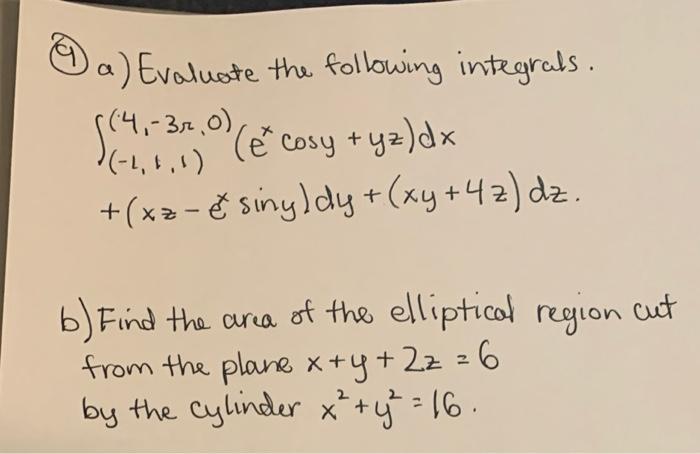 9 a) Evaluate the following integrals.
∫(-1, 1, 1)^(4, -3π, 0) (e^x cosy + yz)dx
+(xz - e^x siny)dy + (xy+4z) dz.
b) Find the area of the elliptical region cut
from the plane x+y+2z=6
by the cylinder x²+y²=16.